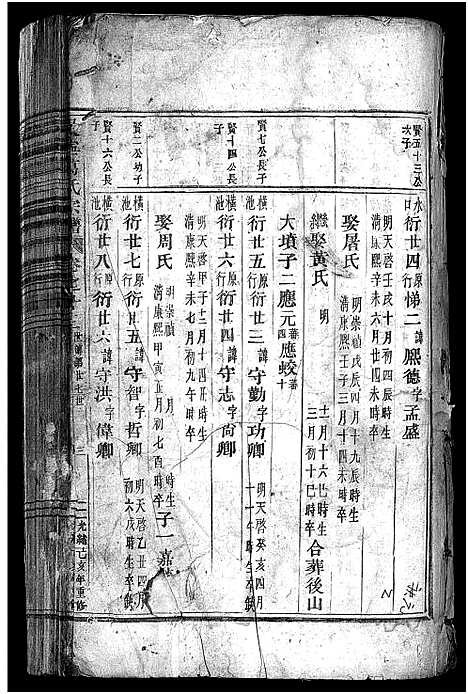 賢五十三公次子
水口衍廿四原行悌二諱熙德字孟盛
明天啓壬戌十月初四辰時生
清康熙辛未六月廿四未時卒
娶屠氏
明崇禎戊辰四月十九辰時生
清康熙壬子三月十四未時卒
繼娶黃氏
明十一月十六巳時生
三月初十巳時卒
合葬後山
大墳子二應元蕃四應蛟蕃十
賢七公長子
橫池衍廿五原行衍廿三諱守勤字功卿
明天啓癸亥四月
賢十四公長子
橫池衍廿六原行衍廿四諱守志字尚卿
明天啓甲子十二月十四丑時生
清康熙辛未七月初九丑時卒
賢二公幼子
橫池衍廿七原行衍廿五諱守智字哲卿
明天啓乙丑四月
初六戌時生卒缺
娶周氏
明崇禎 月 時生
清康熙甲寅五月初七酉時卒
子一嘉
賢十六公長子
橫池衍廿八原行衍廿六諱守洪字偉卿
世
三
光緒己亥年重修